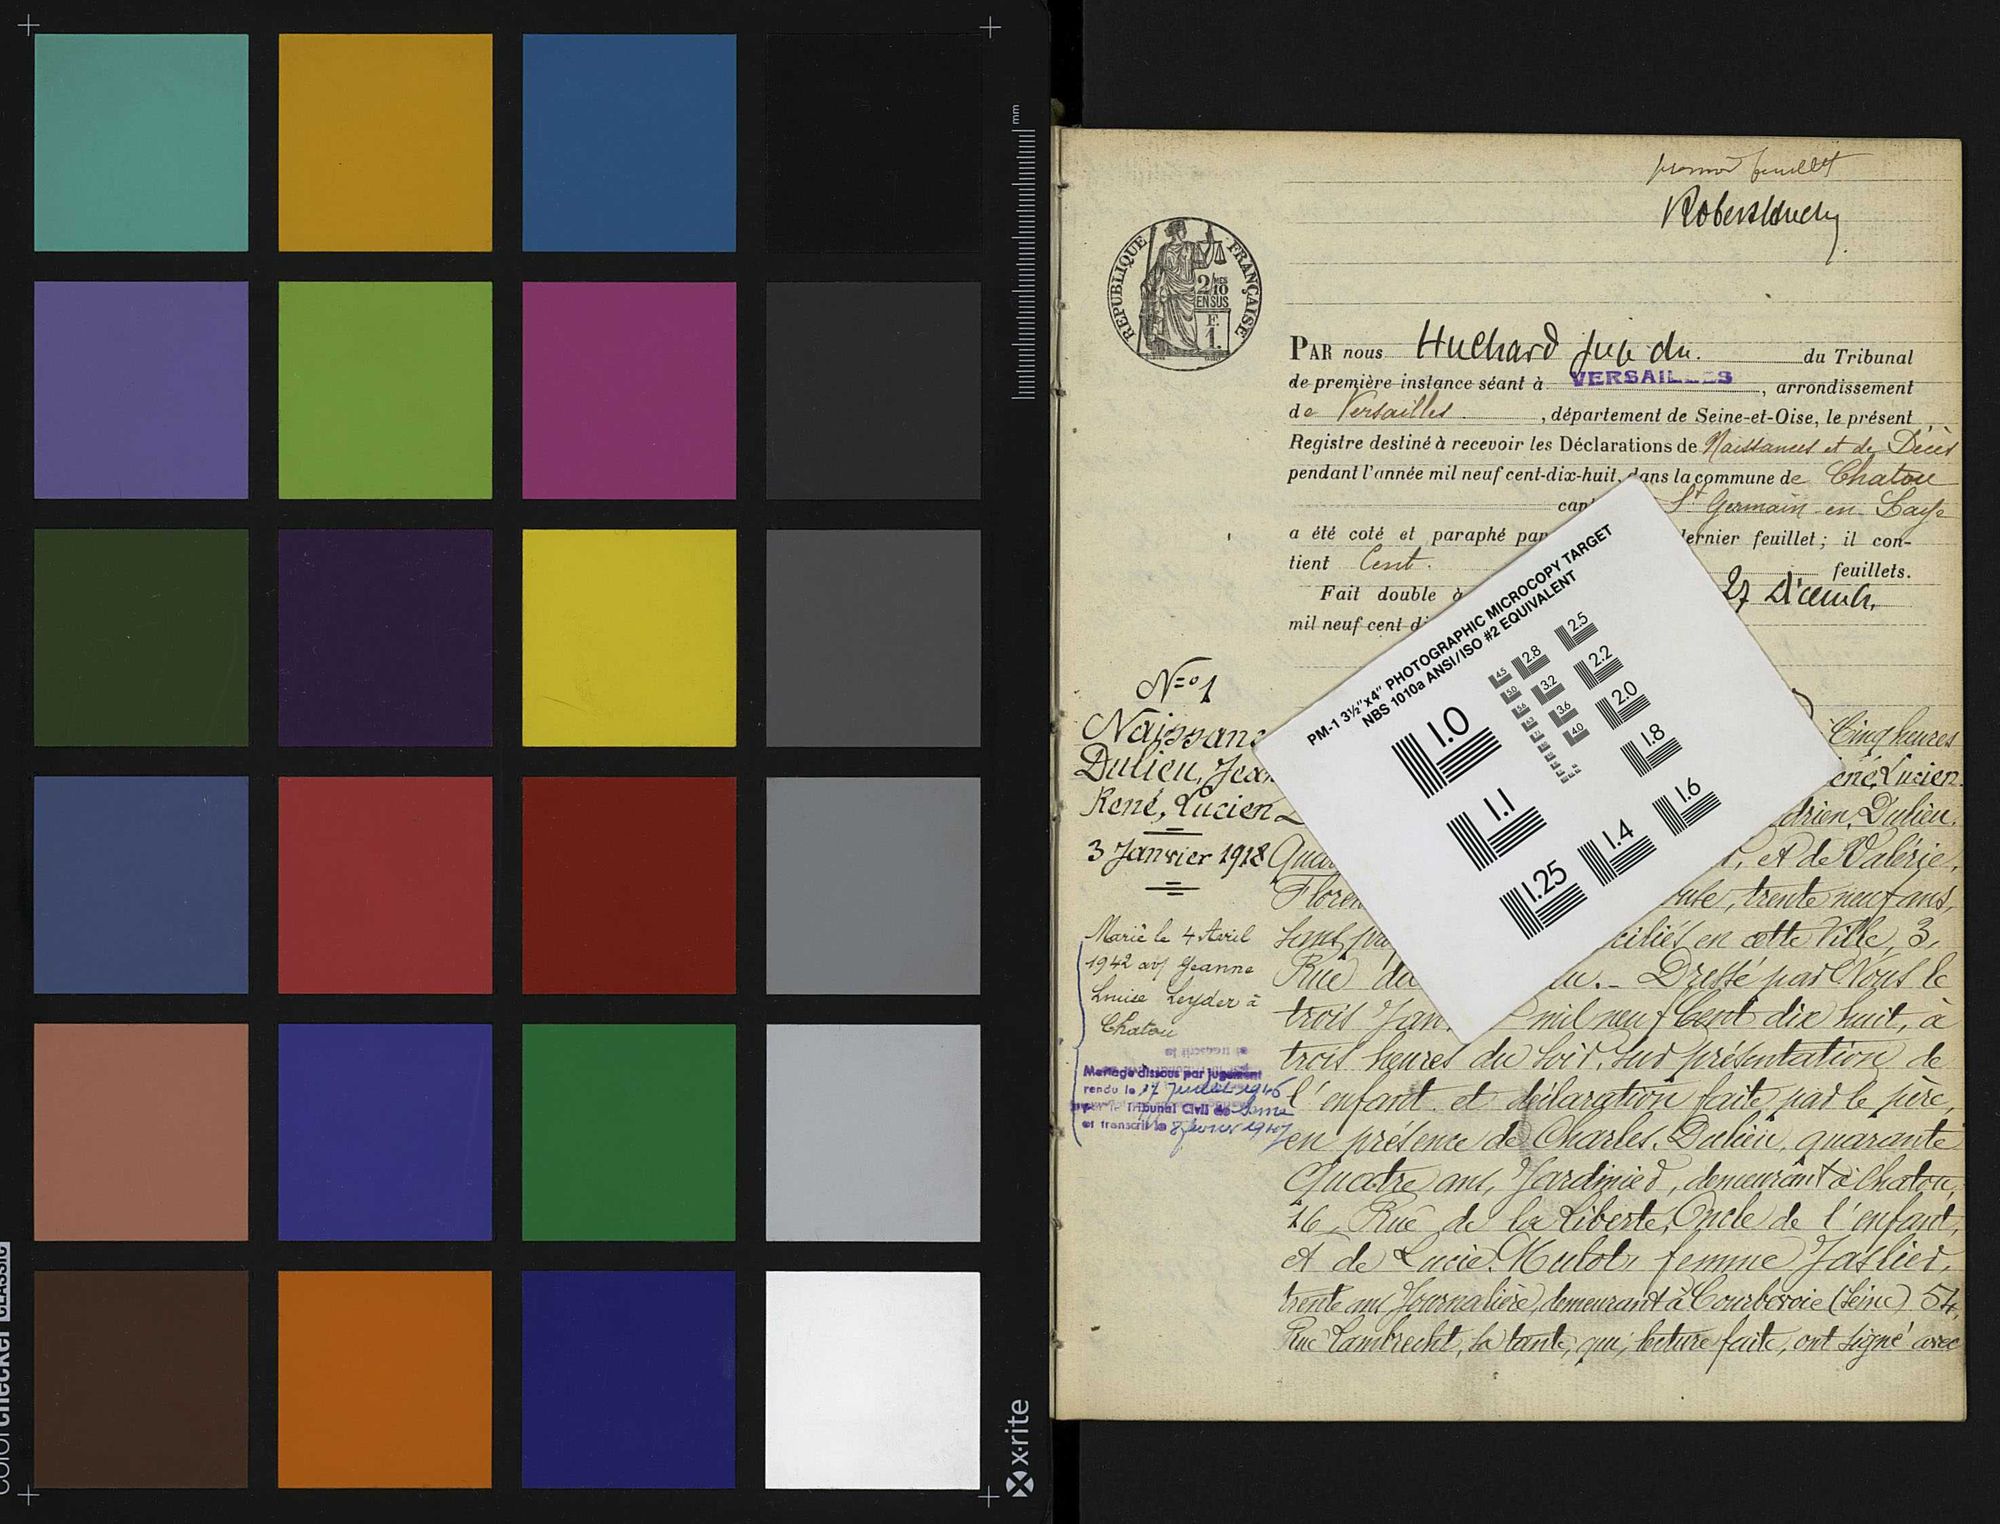 mm
colorchecker CLASSIC
x-rite
premier feuillet
RÉPUBLIQUE FRANÇAISE
2/10
EN SUS
F.
1.
PAR nous Huchard juge du. du Tribunal
de première instance séant à VERSAILLES, arrondissement
de Versailles, département de Seine-et-Oise, le présent
Registre destiné à recevoir les Déclarations de Naissances et de Décès
pendant l'année mil neuf cent-dix-huit, dans la commune de Chatou
can St Germain en Laye
a été coté et paraphé par dernier feuillet; il con-
tient Cent. feuillets.
Fait double à 27 décemb.
mil neuf cent di
PM-1 3½"x4" PHOTOGRAPHIC MICROCOPY TARGET
NBS 1010a ANSI/ISO #2 EQUIVALENT
4.5 2.8 2.5
5.0 3.2 2.2
5.6 3.6 2.0
4.0
1.0 1.8
1.1 1.6
1.25 1.4
N=°1
Naissanc
Dulieu, Jean
René, Lucien
3 Janvier 1918
Marié le 4 Avril
1942 avec Jeanne
Louise Leyder à
Chatou
Mariage dissous par jugement
rendu le 17 Juillet 1946
par le Tribunal Civil de Seine
et transcrit le 8 février 1947
Cinq heures
ené, Lucien.
drien, Dulieu.
Qua et de Valérie,
Floren trente neuf ans,
Sans pro ciliés en cette Ville, 3,
Rue du Dressé par Nous le
trois Jan mil neuf Cent dix huit, à
trois heures du soir, sur présentation de
l'enfant et déclaration faite par le père,
en présence de Charles, Dulieu, quarante
Quatre ans, Jardinier, demeurant à Chatou,
16, Rue de la Liberté, Oncle de l'enfant,
et de Lucie Mulot, femme Jaslier,
trente ans, Journalière, demeurant à Courbevoie (Seine) 54,
Rue Lambrecht, sa tante, qui, lecture faite, ont signé avec